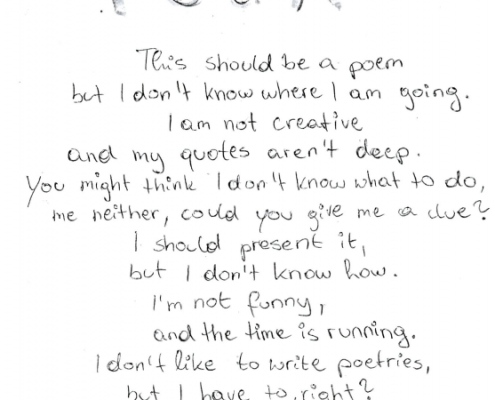 This should be a poem
but I don't know where I am going.
I am not creative
and my quotes aren't deep.
You might think I don't know what to do,
me neither, could you give me a clue?
I should present it,
but I don't know how.
I'm not funny,
and the time is running.
I don't like to write poetries,
but I have to, right?